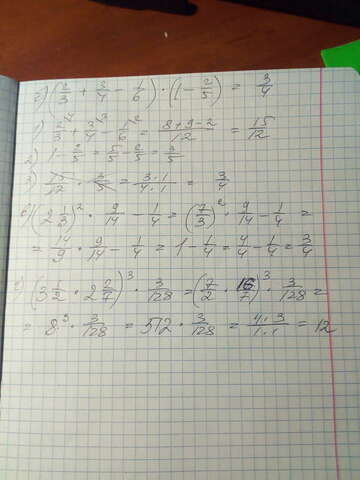 г) (2/3 + 3/4 − 1/6) · (1 − 2/5) = 3/4
1) 2/3⁴ + 3/4³ − 1/6² = (8+9−2)/12 = 15/12
2) 1 − 2/5 = 5/5 − 2/5 = 3/5
3) 15/12 · 3/5 = (3·1)/(4·1) = 3/4
(2 1/3)² · 9/14 − 1/4 = (7/3)² · 9/14 − 1/4 =
= 14/9 · 9/14 − 1/4 = 1 − 1/4 = 4/4 − 1/4 = 3/4
(3 1/2 · 2 2/7)³ · 3/128 = (7/2 · 16/7)³ · 3/128 =
= 8³ · 3/128 = 512 · 3/128 = (4·3)/(1·1) = 12